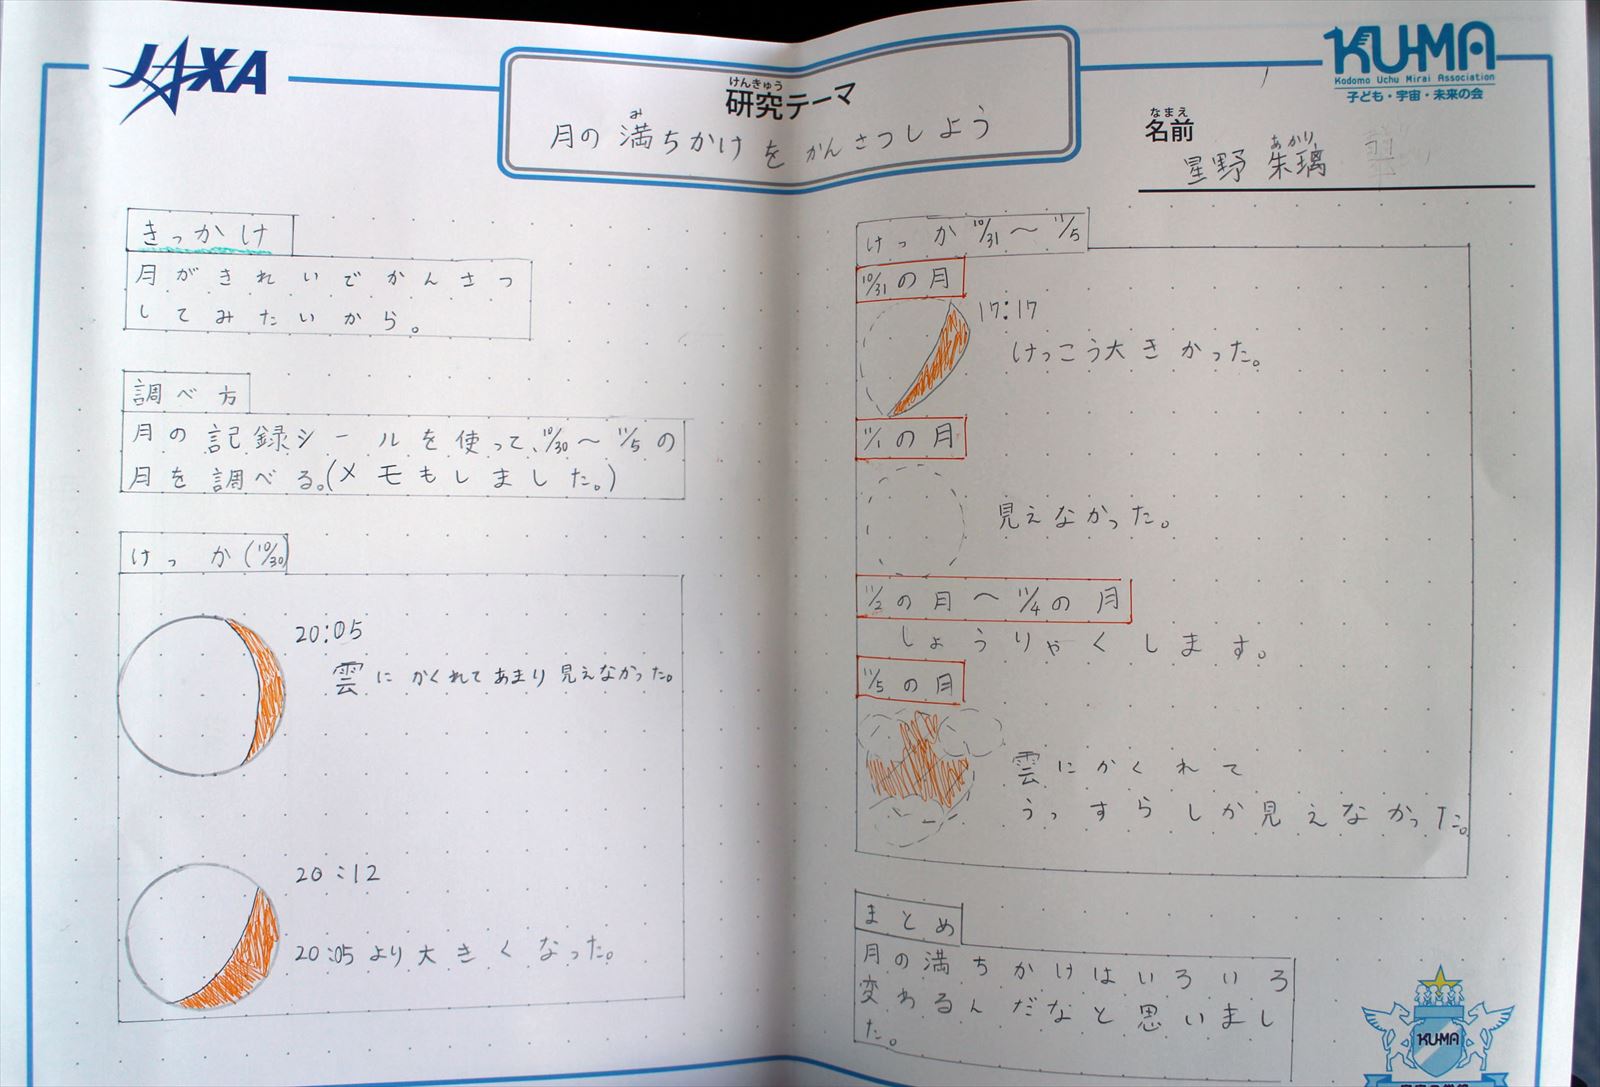 JAXA
けんきゅう
研究テーマ
み
月の満ちかけをかんさつしよう
KUMA
Kodomo Uchu Mirai Association
子ども・宇宙・未来の会
なまえ
名前
あかり
星野 朱璃
きっかけ
月がきれいでかんさつ
してみたいから。
調べ方
月の記録シールを使って、10/30〜11/5の
月を調べる。(メモもしました。)
けっか(10/30)
20:05
雲にかくれてあまり見えなかった。
20:12
20:05より大きくなった。
けっか 10/31〜11/5
10/31の月
17:17
けっこう大きかった。
11/1の月
見えなかった。
11/2の月〜11/4の月
しょうりゃくします。
11/5の月
雲にかくれて
うっすらしか見えなかった。
まとめ
月の満ちかけはいろいろ
変わるんだなと思いまし
た。
KUMA